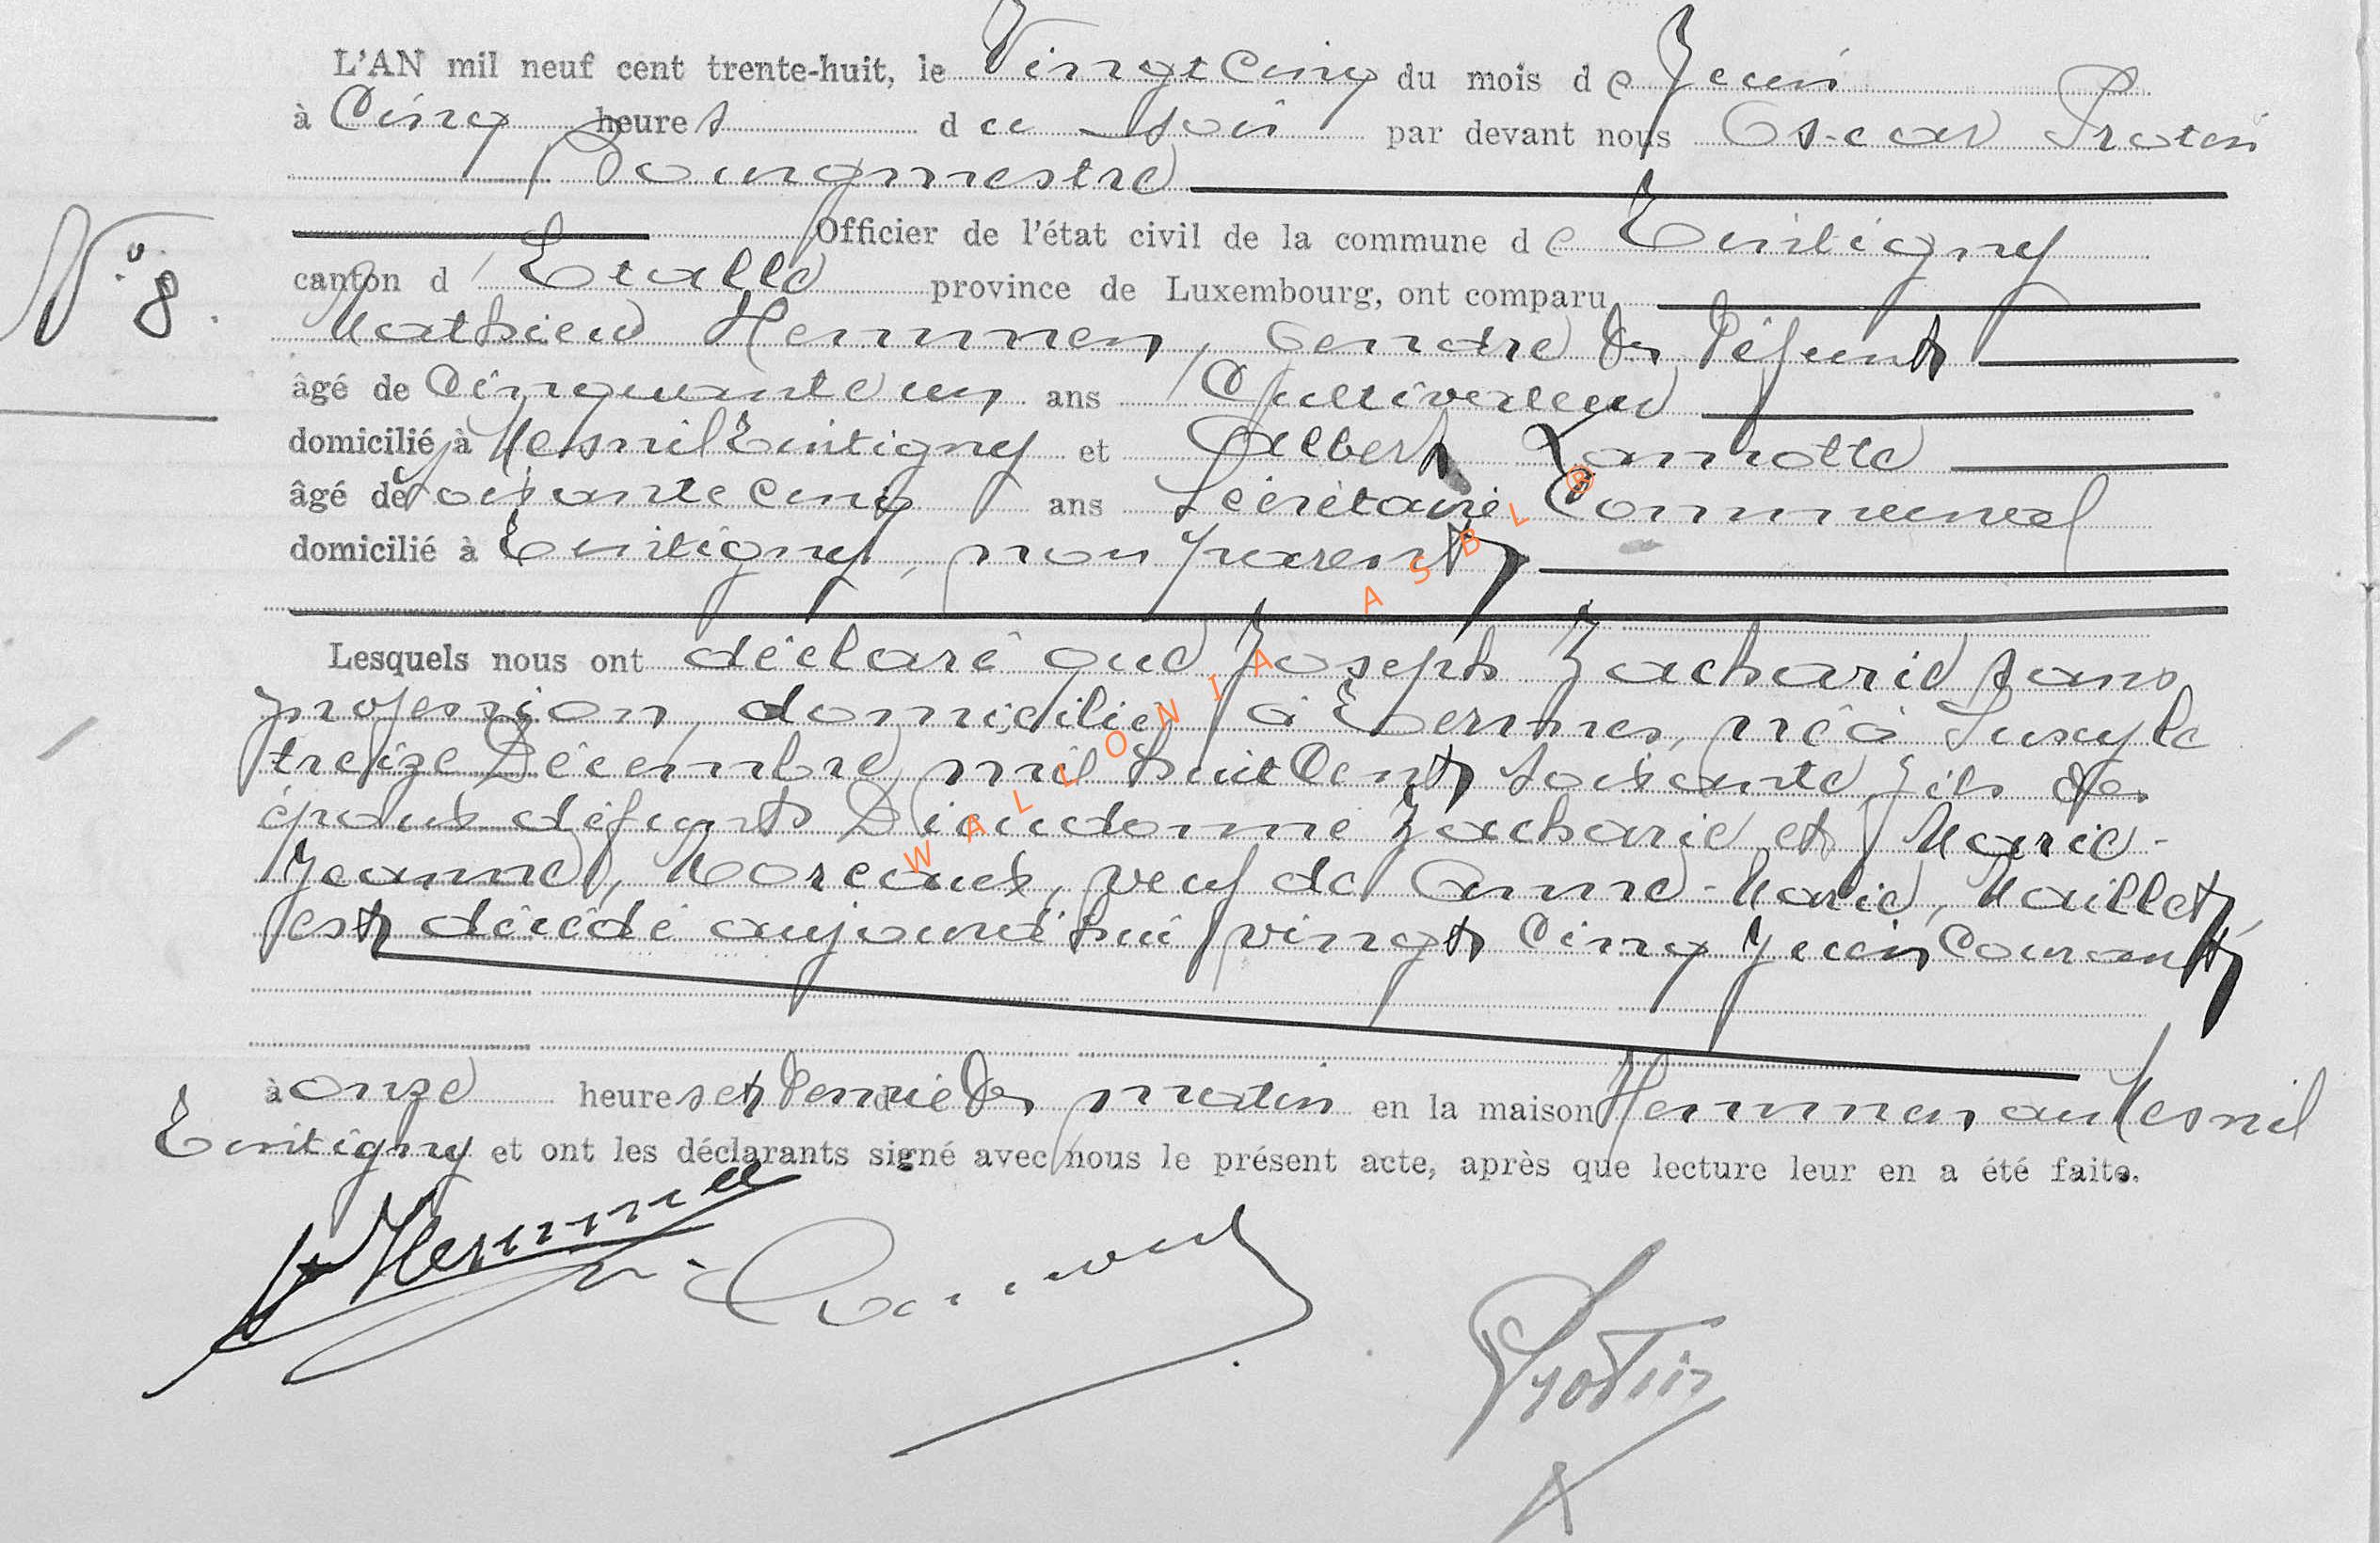 L'AN mil neuf cent trente-huit, le Vingt Cinq du mois de Juin
à Cinq heures du soir par devant nous Oscar Protin
Bourgmestre
Officier de l'état civil de la commune de Tintigny
canton d' Etalle province de Luxembourg, ont comparu
N° 8.
Mathieu Hemmen, Gendre du Défunt
âgé de Cinquante un ans Cultivateur
domicilié à Mesnil Tintigny et Albert Lamotte
âgé de soixante cinq ans Secrétaire Communal
domicilié à Tintigny, non parent
Lesquels nous ont déclaré que Joseph Zacharie sans
profession, domicilié à Termes, né à Suxy le
treize Décembre mil huit Cent soixante, fils des
époux défunts Dieudonné Zacharie et Marie-
Jeanne, Moreaux, veuf de Anne-Marie, Maillet,
est décédé aujourd'hui vingt Cinq Juin Courant
à onze heures et Demie du matin en la maison Hemmen au Mesnil
Tintigny et ont les déclarants signé avec nous le présent acte, après que lecture leur en a été faite.
Hemmen
Protin
WALLONIA ASBL ®